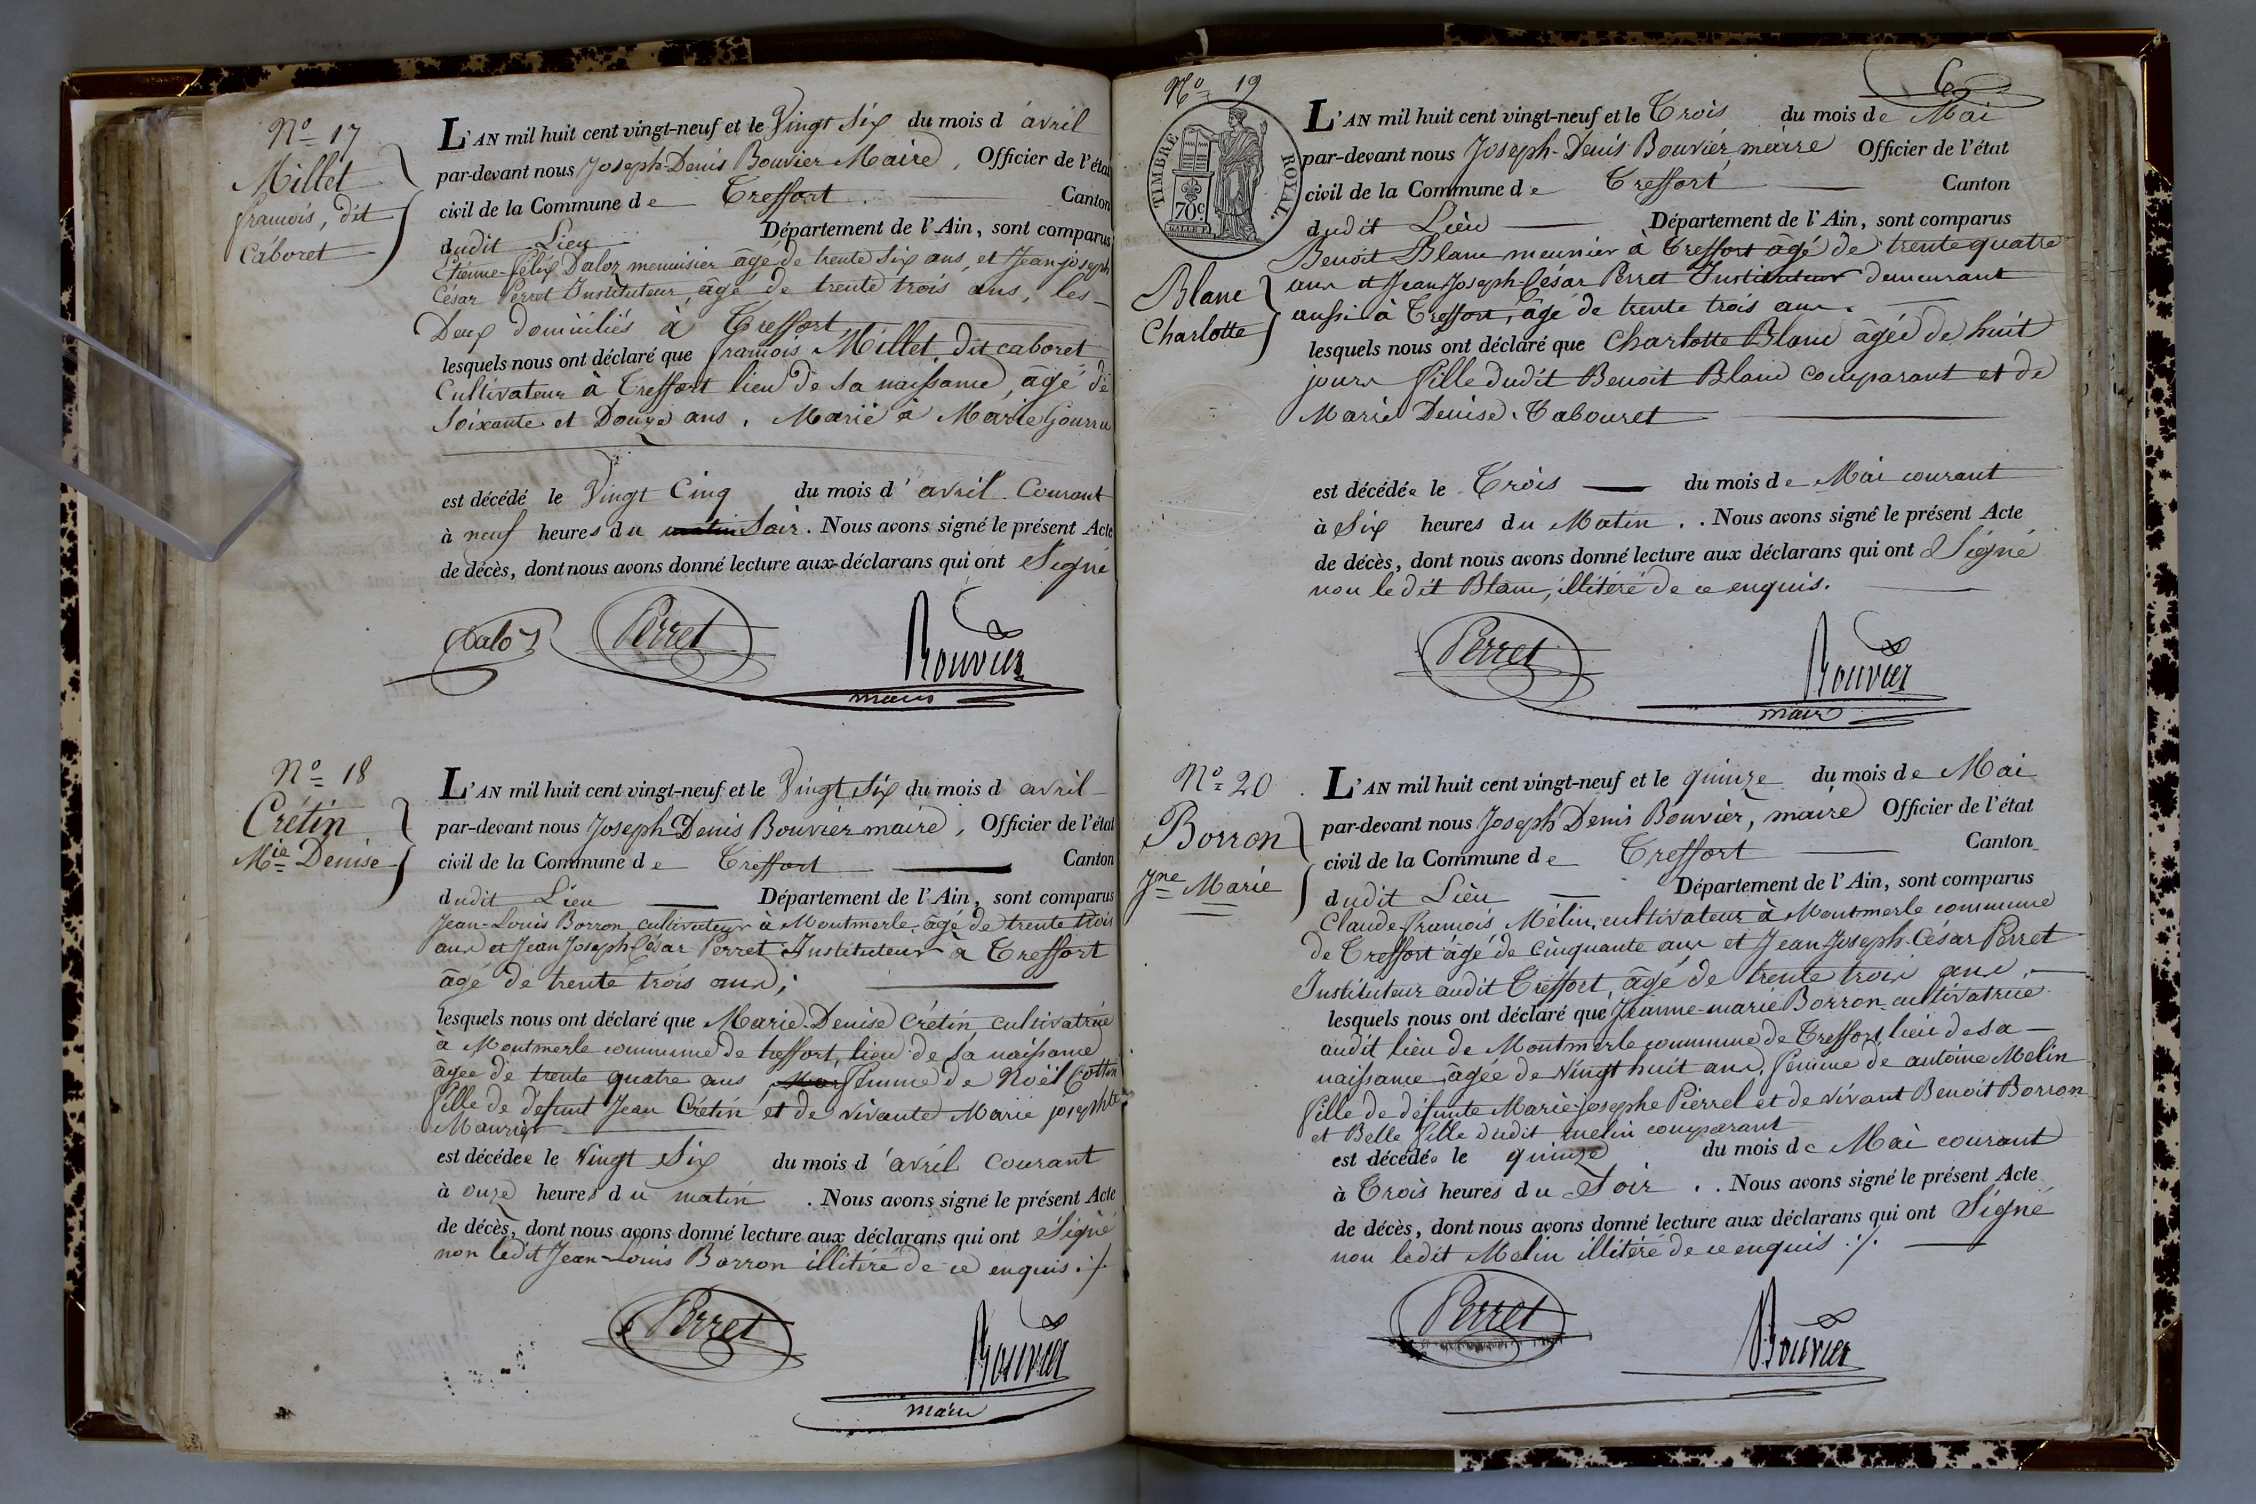 N° 17
Millet
françois, dit
Caboret
L'AN mil huit cent vingt-neuf et le Vingt Six du mois d'avril
par-devant nous Joseph-Denis Bouvier Maire, Officier de l'état
civil de la Commune de Treffort. Canton
dudit Lieu Département de l'Ain, sont comparus
Etienne-félix Daloz menuisier âgé de trente six ans, et Jean-joseph
César Perret Instituteur, âgé de trente trois ans, les-
Deux domiciliés à Treffort
lesquels nous ont déclaré que françois Millet, dit caboret
Cultivateur à Treffort lieu de sa naissance, âgé de
Soixante et Douze ans. Marié à Marie
est décédé le Vingt Cinq du mois d'avril Courant
à neuf heures du matin Soir. Nous avons signé le présent Acte
de décès, dont nous avons donné lecture aux déclarans qui ont Signé
Daloz Perret Bouvier
maire
N° 18
Crétin
Mie Denise
L'AN mil huit cent vingt-neuf et le Vingt Six du mois d avril
par-devant nous Joseph Denis Bouvier maire, Officier de l'état
civil de la Commune de Treffort Canton
dudit Lieu Département de l'Ain, sont comparus
Jean-Louis Borron cultivateur à Montmerle, âgé de trente trois
ans et Jean Joseph César Perret Instituteur à Treffort
âgé de trente trois ans;
lesquels nous ont déclaré que Marie-Denise Crétin cultivatrice
à Montmerle commune de treffort, lieu de sa naissance
âgée de trente quatre ans femme de Noël Cottin
fille de défunt Jean Crétin et de vivante Marie josephte
Maurier
est décédée le Vingt Six du mois d'avril courant
à onze heures du matin. Nous avons signé le présent Acte
de décès, dont nous avons donné lecture aux déclarans qui ont Signé
non ledit Jean-Louis Borron illitéré de ce enquis ./.
Perret Bouvier
maire
6
N° 19
TIMBRE ROYAL.
70c
Blanc
Charlotte
L'AN mil huit cent vingt-neuf et le Trois du mois de Mai
par-devant nous Joseph-Denis Bouvier, maire Officier de l'état
civil de la Commune de Treffort Canton
dudit Lieu Département de l'Ain, sont comparus
Benoit Blanc meunier à Treffort âgé de trente quatre
ans et Jean Joseph-César Perret Instituteur demeurant
aussi à Treffort, âgé de trente trois ans.
lesquels nous ont déclaré que Charlotte Blanc âgée de huit
jours fille dudit Benoit Blanc comparant et de
Marie Denise Tabouret
est décédée le Trois du mois de Mai courant
à Six heures du Matin. . Nous avons signé le présent Acte
de décès, dont nous avons donné lecture aux déclarans qui ont Signé
non ledit Blanc, illitéré de ce enquis.
Perret Bouvier
maire
N° 20
Borron
Jne Marie
L'AN mil huit cent vingt-neuf et le quinze du mois de Mai
par-devant nous Joseph Denis Bouvier, maire Officier de l'état
civil de la Commune de Treffort Canton
dudit Lieu Département de l'Ain, sont comparus
Claude-françois Mélin, cultivateur à Montmerle commune
de Treffort âgé de cinquante ans et Jean Joseph-César Perret
Instituteur audit Treffort, âgé de trente trois ans,
lesquels nous ont déclaré que Jeanne-marie Borron cultivatrice
audit lieu de Montmerle commune de Treffort lieu de sa
naissance, âgée de Vingt huit ans, femme de antoine Melin
fille de défunte Marie-josephe Pierrel et de vivant Benoit Borron
et Belle fille dudit melin comparant
est décédée le quinze du mois de Mai courant
à Trois heures du Soir. . Nous avons signé le présent Acte
de décès, dont nous avons donné lecture aux déclarans qui ont Signé
non ledit Melin illitéré de ce enquis ./.
Perret Bouvier